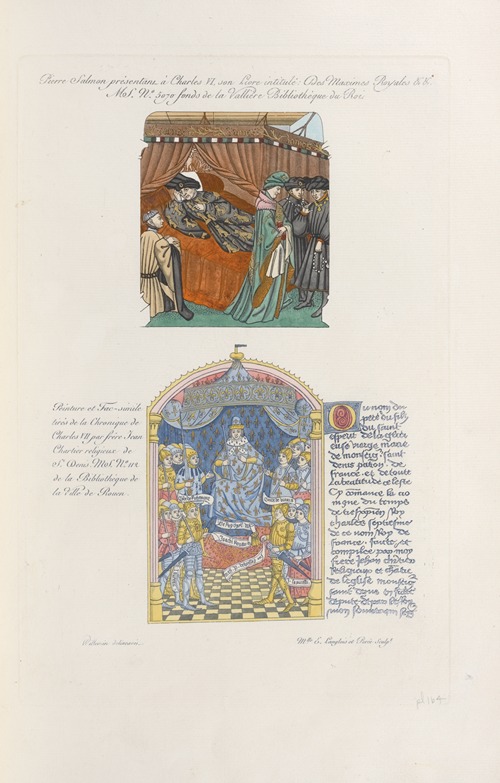 Pierre Salmon présentant à Charles VI, son Livre intitulé: Des Maximes Royales &&.
MS. N.º 5070 fonds de la Vallière Bibliothèque du Roi.
Peinture et Fac-simile
tirés de la Chronique de
Charles VII par frère Jean
Chartier religieux de
St. Denis MS. N.º
de la Bibliothèque de
la Ville de Rouen.
nom du
pere du filz
du saint
esperit de la glori
euse vierge marie
de monseigr saint
denis patron de
france et de toute
la beatitude celeste
Cy commance la cro
nique du temps
de
charles septiesme
de ce nom Roy de
france faicte et
compilee par moy
frere Jehan
Religieux et chantre
de leglise monseigr
saint denis
Mlle E. Langlois et Sculpt.